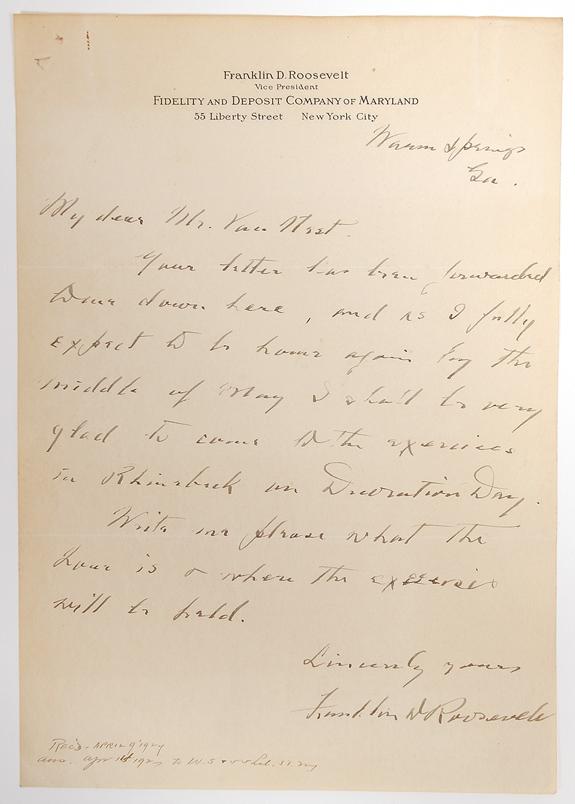 Franklin D. Roosevelt
Vice President
Fidelity and Deposit Company of Maryland
55 Liberty Street New York City
Warm Springs
Ga.
My dear Mr. Van Nest.
Your letter has been forwarded
to me down here, and as I fully
expect to be home again by the
middle of May I shall be very
glad to come to the exercises
in Rhinebeck on Decoration Day.
Write me please what the
hour is & where the exercises
will be held.
Sincerely yours
Franklin D Roosevelt
Rec'd. APRIL 9 1927
ans. Apr 1927 to W.S